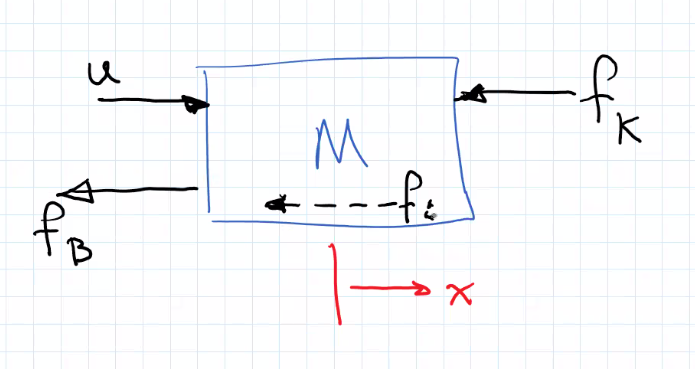 u
f_K
M
f_i
f_B
x